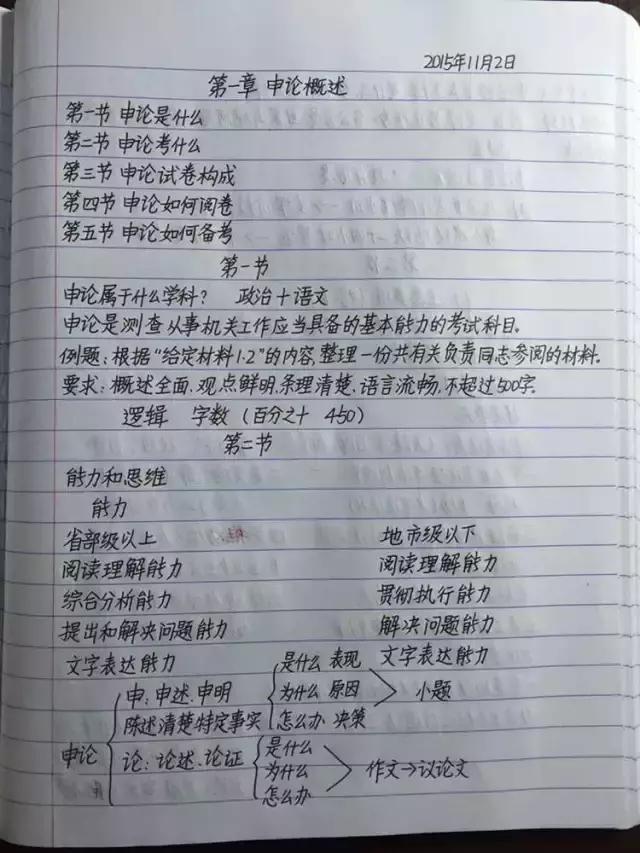 2015年11月2日
第一章 申论概述
第一节 申论是什么
第二节 申论考什么
第三节 申论试卷构成
第四节 申论如何阅卷
第五节 申论如何备考
第一节
申论属于什么学科？ 政治+语文
申论是测查从事机关工作应当具备的基本能力的考试科目。
例题：根据“给定材料1-2”的内容，整理一份共有关负责同志参阅的材料。
要求：概述全面、观点鲜明、条理清楚、语言流畅，不超过500字。
逻辑 字数（百分之十 450）
第二节
能力和思维
能力
省部级以上 地市级以下
阅读理解能力 阅读理解能力
综合分析能力 贯彻执行能力
提出和解决问题能力 解决问题能力
文字表达能力 是什么 表现 文字表达能力
申：申述、申明 为什么 原因 小题
陈述清楚特定事实 怎么办 决策
申论 论：论述、论证 是什么
为什么 作文→议论文
怎么办